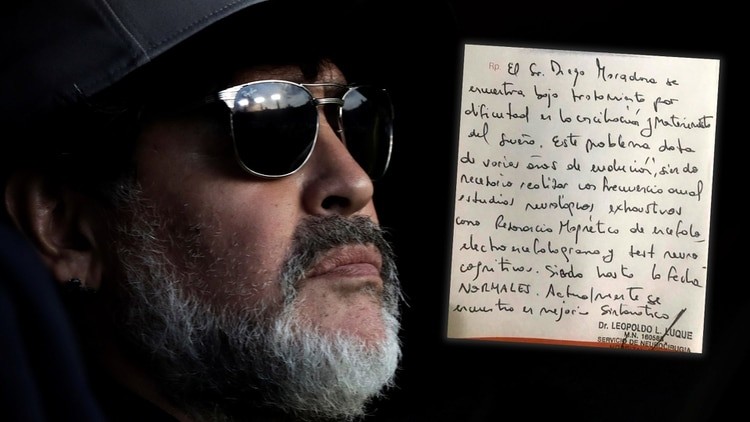 Rp.
El Sr. Diego Maradona se
encuentra bajo tratamiento por
dificultad en la conciliación y mantenimiento
del sueño. Este problema data
de varios años de evolución, siendo
necesario realizar con frecuencia anual
estudios neurológicos exhaustivos
como Resonancia Magnética de encéfalo,
electroencefalograma y test neuro
cognitivos. Siendo hasta la fecha
NORMALES. Actualmente se
encuentra en mejoría sintomática
Dr. LEOPOLDO L. LUQUE
M.N.
SERVICIO DE NEUROCIRUGIA